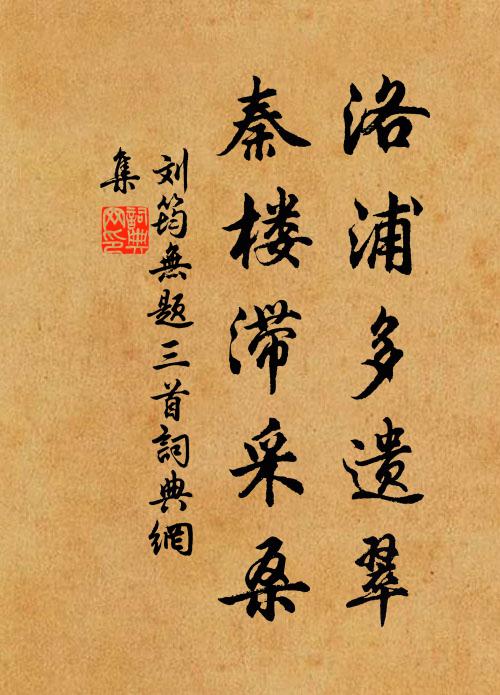 洛浦多遗翠
秦楼滞采桑
刘筠無题三首詞典網
集
詞典
网印